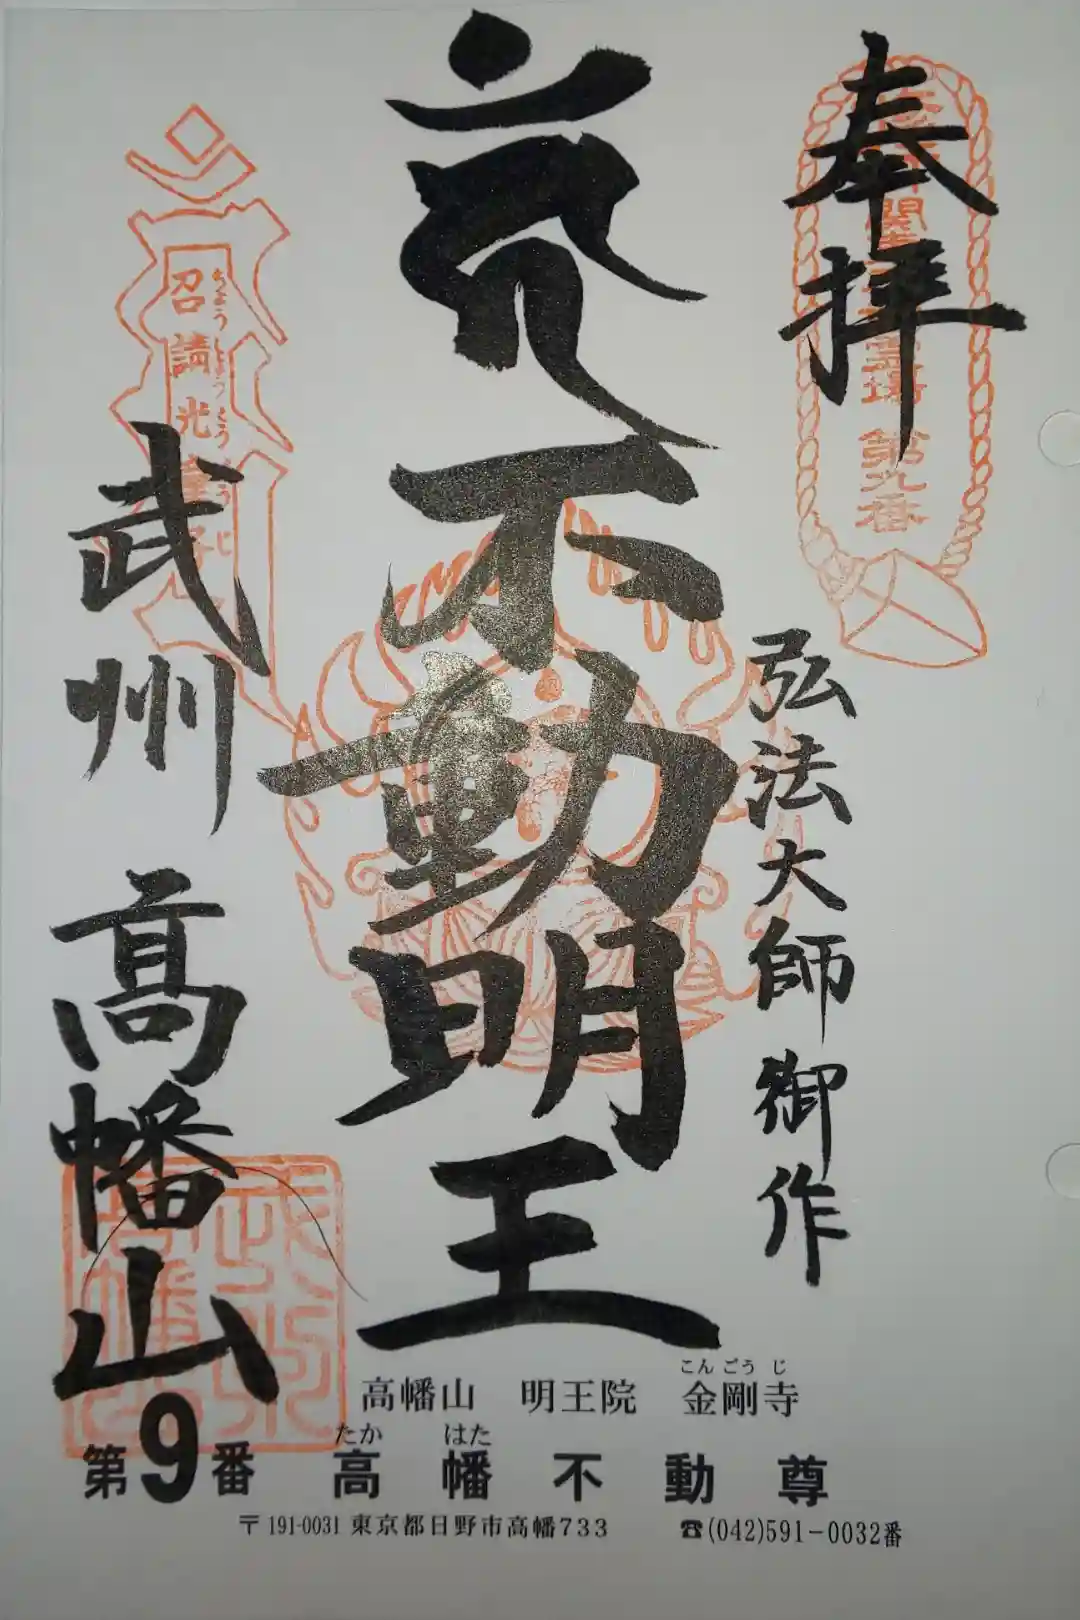 奉拝
弘法大師御作
不動明王
武州 高幡山
召請光
第九番
高幡山 明王院 金剛寺
こんごうじ
第9番 高幡不動尊
たか はた
〒191-0031 東京都日野市高幡733 ☎(042)591-0032番